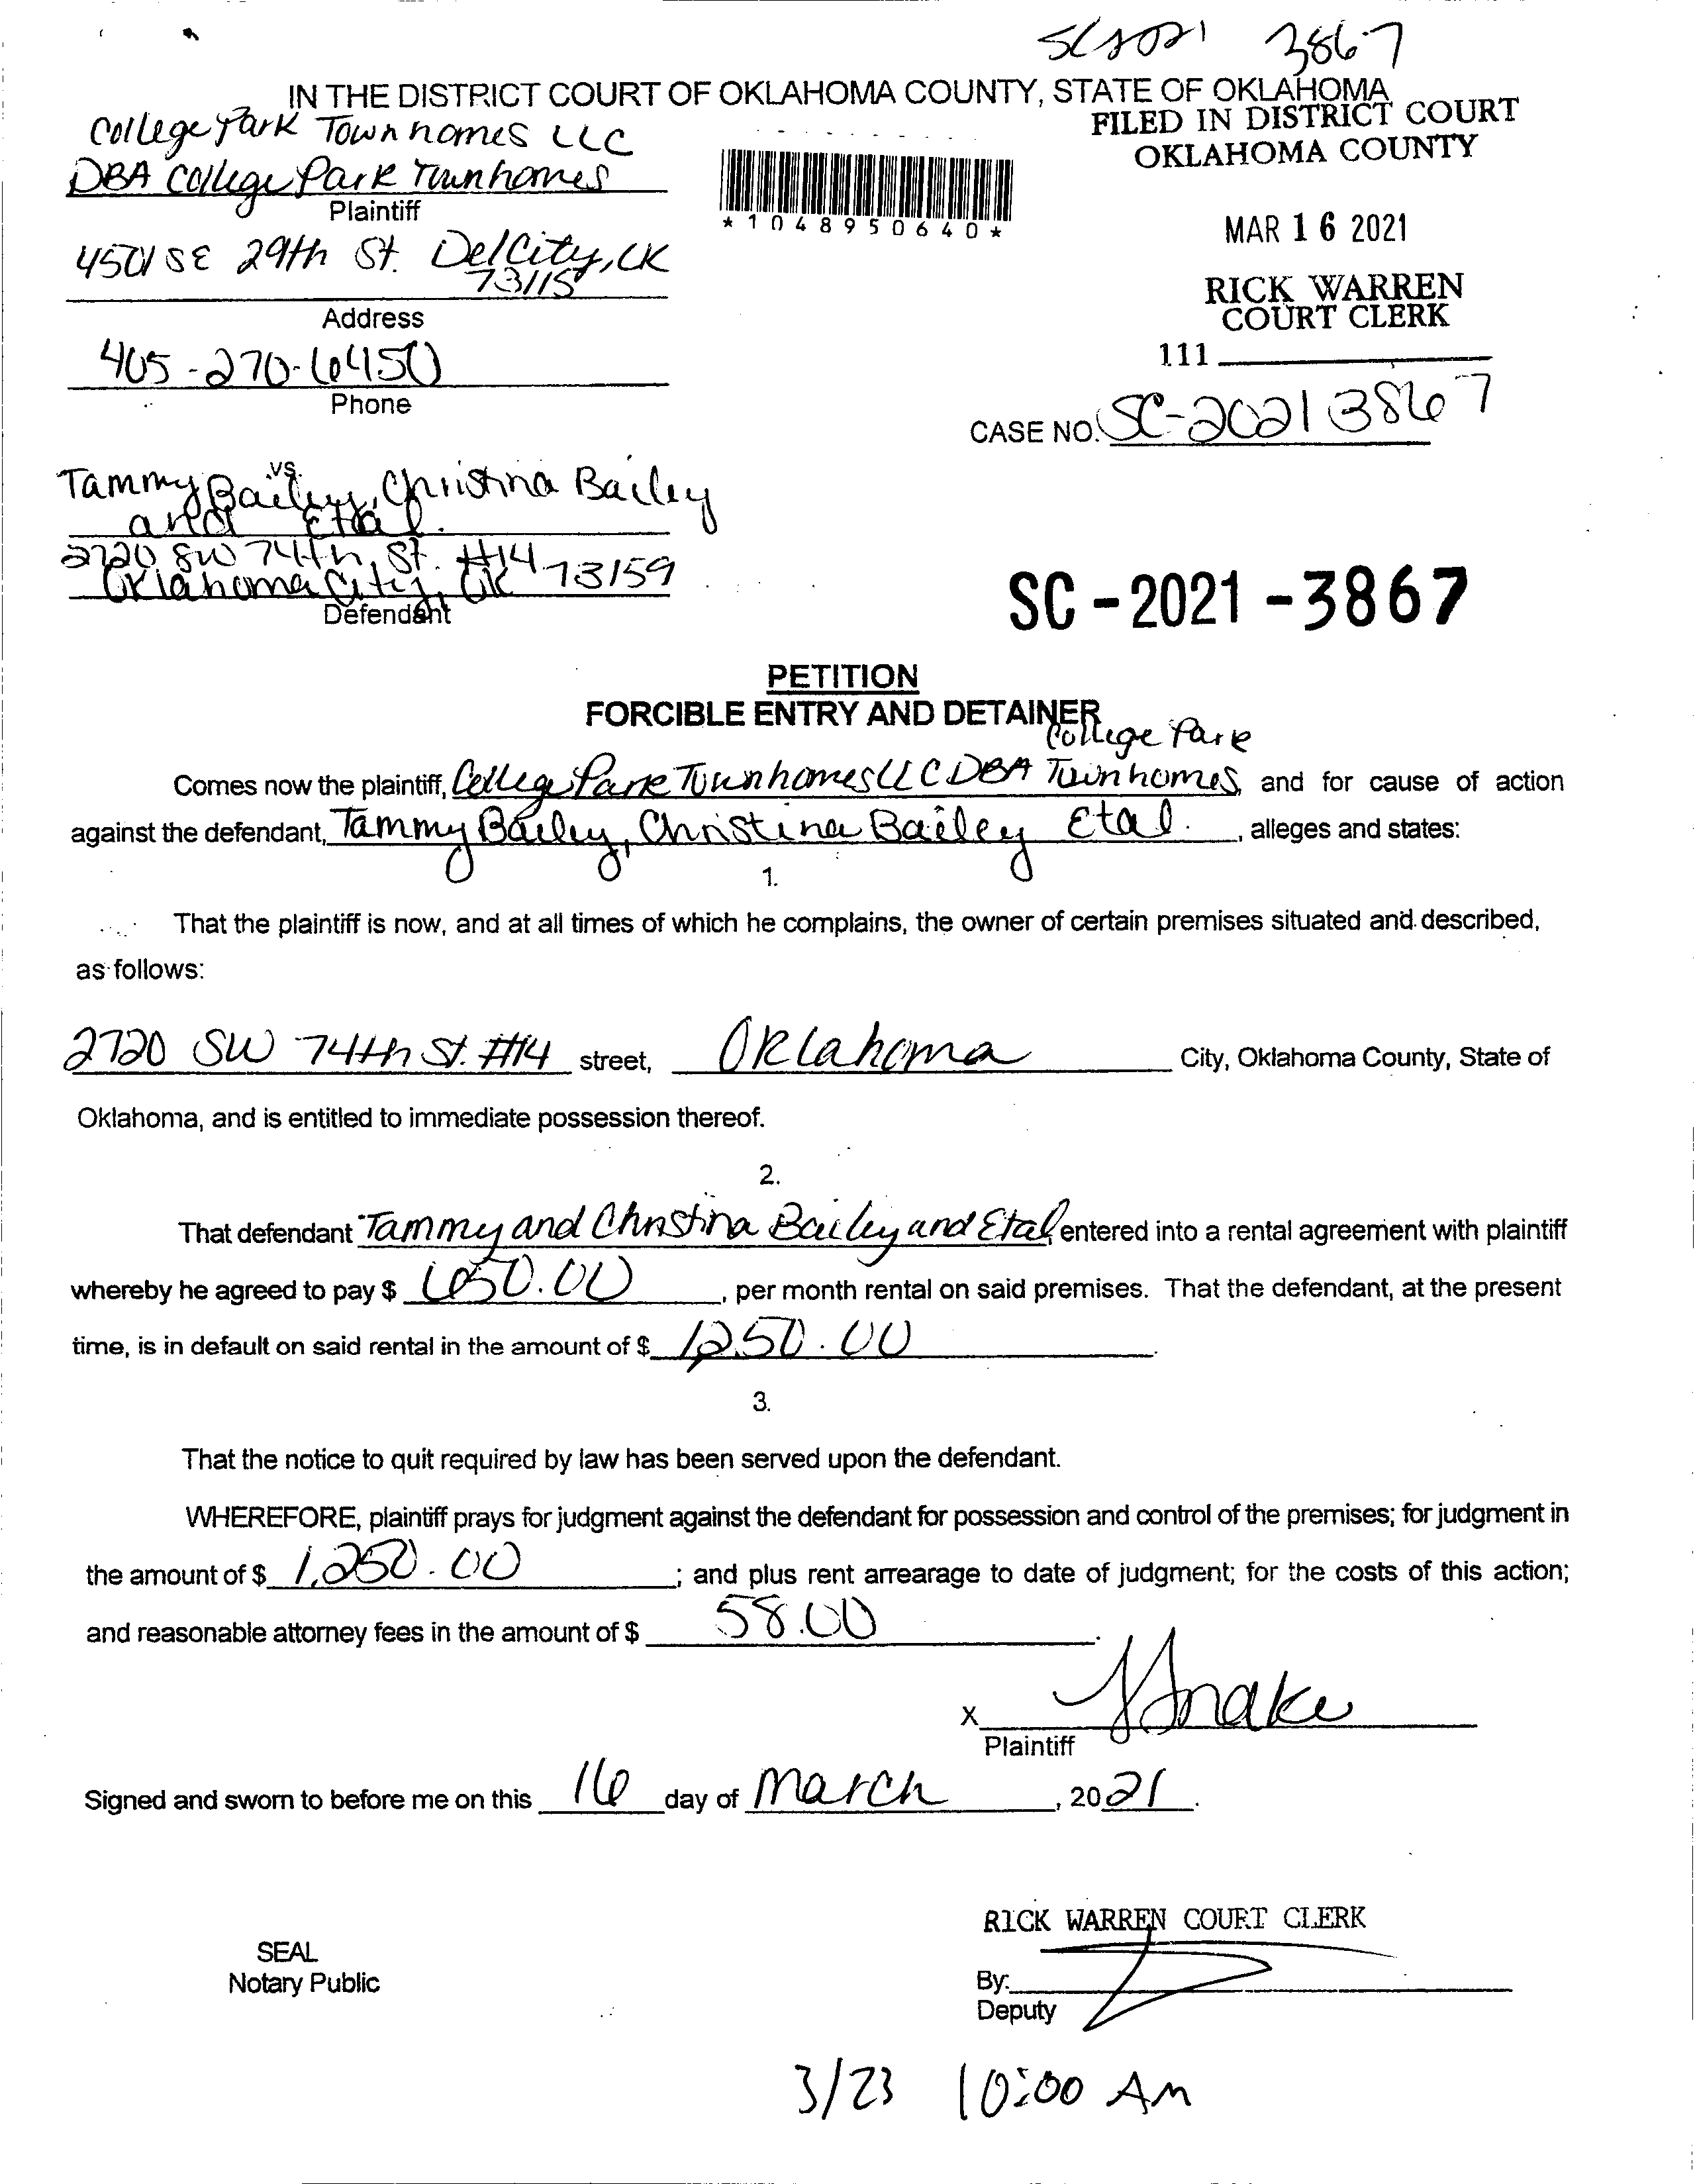 SC2021 3867
IN THE DISTRICT COURT OF OKLAHOMA COUNTY, STATE OF OKLAHOMA
FILED IN DISTRICT COURT
OKLAHOMA COUNTY
College Park Townhomes LLC
DBA College Park Townhomes
Plaintiff
*1048950640*
MAR 16 2021
4501 SE 29th St. Del City, OK
73115
Address
RICK WARREN
COURT CLERK
111
405-270-6450
Phone
CASE NO. SC-2021 3867
vs.
Tammy Bailey, Christina Bailey
and Etal.
2720 SW 74th St. #14
Oklahoma City, OK 73159
Defendant
SC-2021-3867
PETITION
FORCIBLE ENTRY AND DETAINER
College Park
Comes now the plaintiff, College Park Townhomes LLC DBA Townhomes, and for cause of action
against the defendant, Tammy Bailey, Christina Bailey Etal. , alleges and states:
1.
That the plaintiff is now, and at all times of which he complains, the owner of certain premises situated and described,
as follows:
2720 SW 74th St. #14 street, Oklahoma City, Oklahoma County, State of
Oklahoma, and is entitled to immediate possession thereof.
2.
That defendant Tammy and Christina Bailey and Etal entered into a rental agreement with plaintiff
whereby he agreed to pay $ 650.00 , per month rental on said premises. That the defendant, at the present
time, is in default on said rental in the amount of $ 1250.00 .
3.
That the notice to quit required by law has been served upon the defendant.
WHEREFORE, plaintiff prays for judgment against the defendant for possession and control of the premises; for judgment in
the amount of $ 1,250.00 ; and plus rent arrearage to date of judgment; for the costs of this action;
and reasonable attorney fees in the amount of $ 58.00 .
X
Plaintiff
Signed and sworn to before me on this 16 day of March , 2021 .
RICK WARREN COURT CLERK
SEAL
Notary Public
By:
Deputy
3/23 10:00 AM